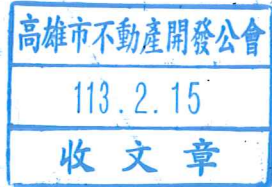 高雄市不動產開發公會
113.2.15
收文章